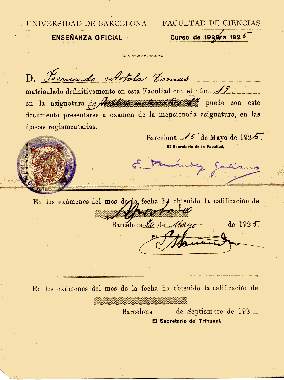 UNIVERSIDAD DE BARCELONA
FACULTAD DE CIENCIAS
ENSEÑANZA OFICIAL
Curso de 1934 a 1935
D. Fernando Artola Comas
matriculado definitivamente en esta Facultad con el núm. 17
en la asignatura de Análisis matemático 2º puede con este
documento presentarse a examen de la mencionada asignatura, en las
épocas reglamentarias.
Barcelona 15 de Mayo de 1935
El Secretario de la Facultad,
En los exámenes del mes de la fecha ha obtenido la calificación de
Barcelona de Mayo de 1935
En los exámenes del mes de la fecha ha obtenido la calificación de
Barcelona de Septiembre de 193
El Secretario de Tribunal,